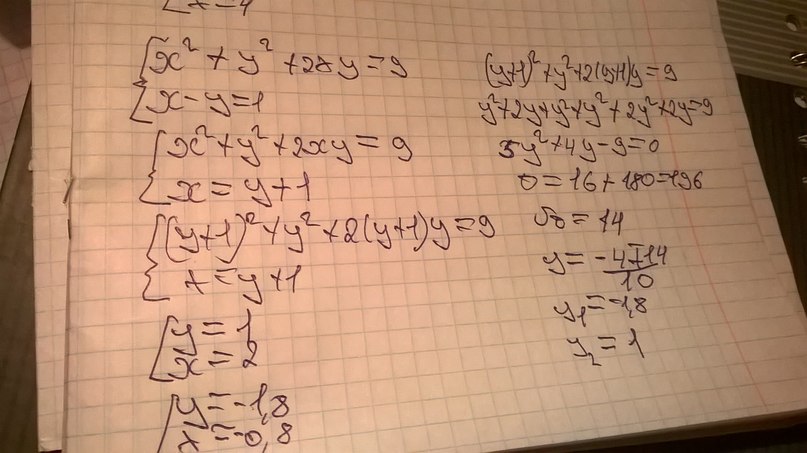 x=4
x² + y² + 2xy = 9
x - y = 1
x² + y² + 2xy = 9
x = y + 1
(y+1)² + y² + 2(y+1)y = 9
x = y + 1
y = 1
x = 2
y = -1,8
x = -0,8
(y+1)² + y² + 2(y+1)y = 9
y² + 2y + y² + y² + 2y² + 2y = 9
5y² + 4y - 9 = 0
D = 16 + 180 = 196
√D = 14
y = (-4∓14)/10
y₁ = -1,8
y₂ = 1